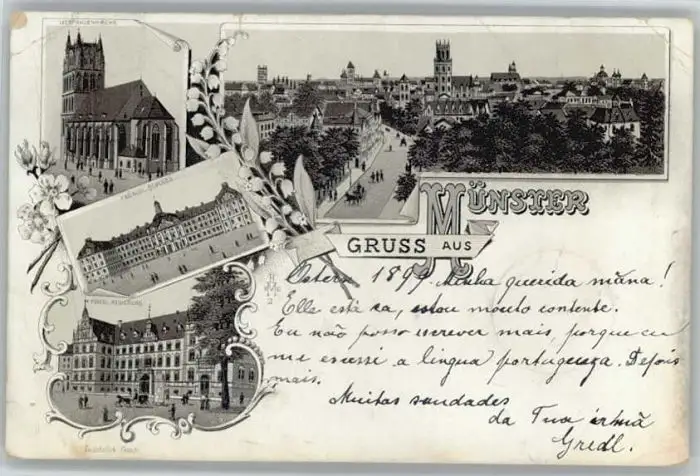 UEBERWASSERKIRCHE
KÖNIGL. SCHLOSS
KÖNIGL. REGIERUNG
GRUSS AUS
MÜNSTER
Ostern 1899. Minha querida māna!
Elle está ca, estou mouto contente.
Eu não posso escrever mais, porque eu
me escessi a lingua portugueza. Depois
mais.
Muitas saudades
da Tua irmã
Gredl.